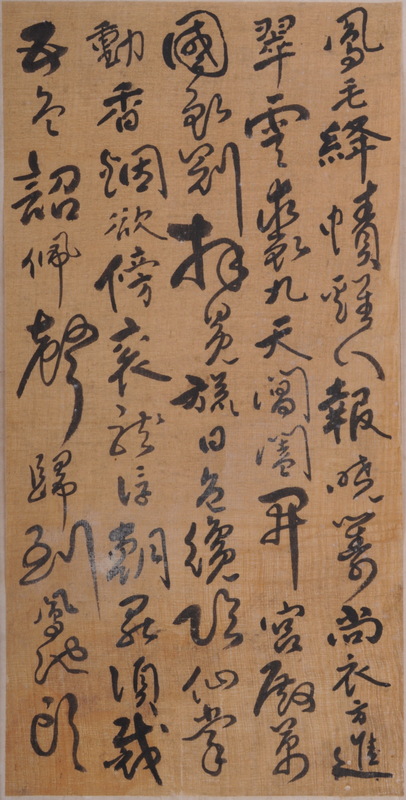 鳳毛絳幘雞人報曉籌尚衣方進
翠雲裘九天閶闔開宮殿萬
國衣冠拜冕旒日色纔臨仙掌
動香烟欲傍袞龍浮朝罷須裁
五色詔佩聲歸到鳳池頭